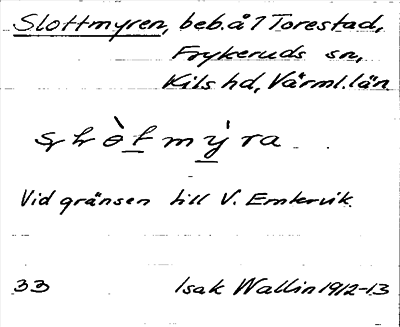 Slottmyren, beb. å 7 Torestad,
Frykeruds sn,
Kils hd, Värml. län
Vid gränsen till V. Emtervik.
33 Isak Wallin 1912-13